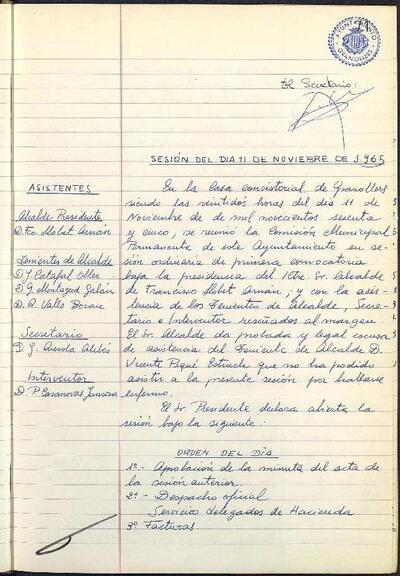 AYUNTAMIENTO
GRANOLLERS
El Secretario:
SESIÓN DEL DIA 11 DE NOVIEMBRE DE 1.965
ASISTENTES
Alcalde-Presidente
D. Fco. Llobet Arnán
Tenientes de Alcalde
D. J.
D. G.
D. R. Valls
Secretario
D. J.
Interventor
D. P. Casanovas
En la Casa consistorial de Granollers
siendo las veintidos horas del dia 11 de
Noviembre de de mil novecientos sesenta
y cinco, se reunió la Comisión Municipal
Permanente de este Ayuntamiento en se-
sión ordinaria de primera convocatoria
bajo la presidencia del Iltre. Sr. Alcalde
D. Francisco Llobet Arnán; y con la asis-
tencia de los Tenientes de Alcalde, Secre-
tario e Interventor reseñados al margen
El Sr. Alcalde da probada y legal escusa
de asistencia del Teniente de Alcalde D.
Vicente Piqué Estruch que no ha podido
asistir a la presente sesión por hallarse
enfermo.
El Sr. Presidente declara abierta la
sesión bajo la siguiente:
ORDEN DEL DÍA
1º.- Aprobación de la minuta del acta de
la sesión anterior.
2º.- Despacho oficial
Servicios delegados de Hacienda
3º Facturas.